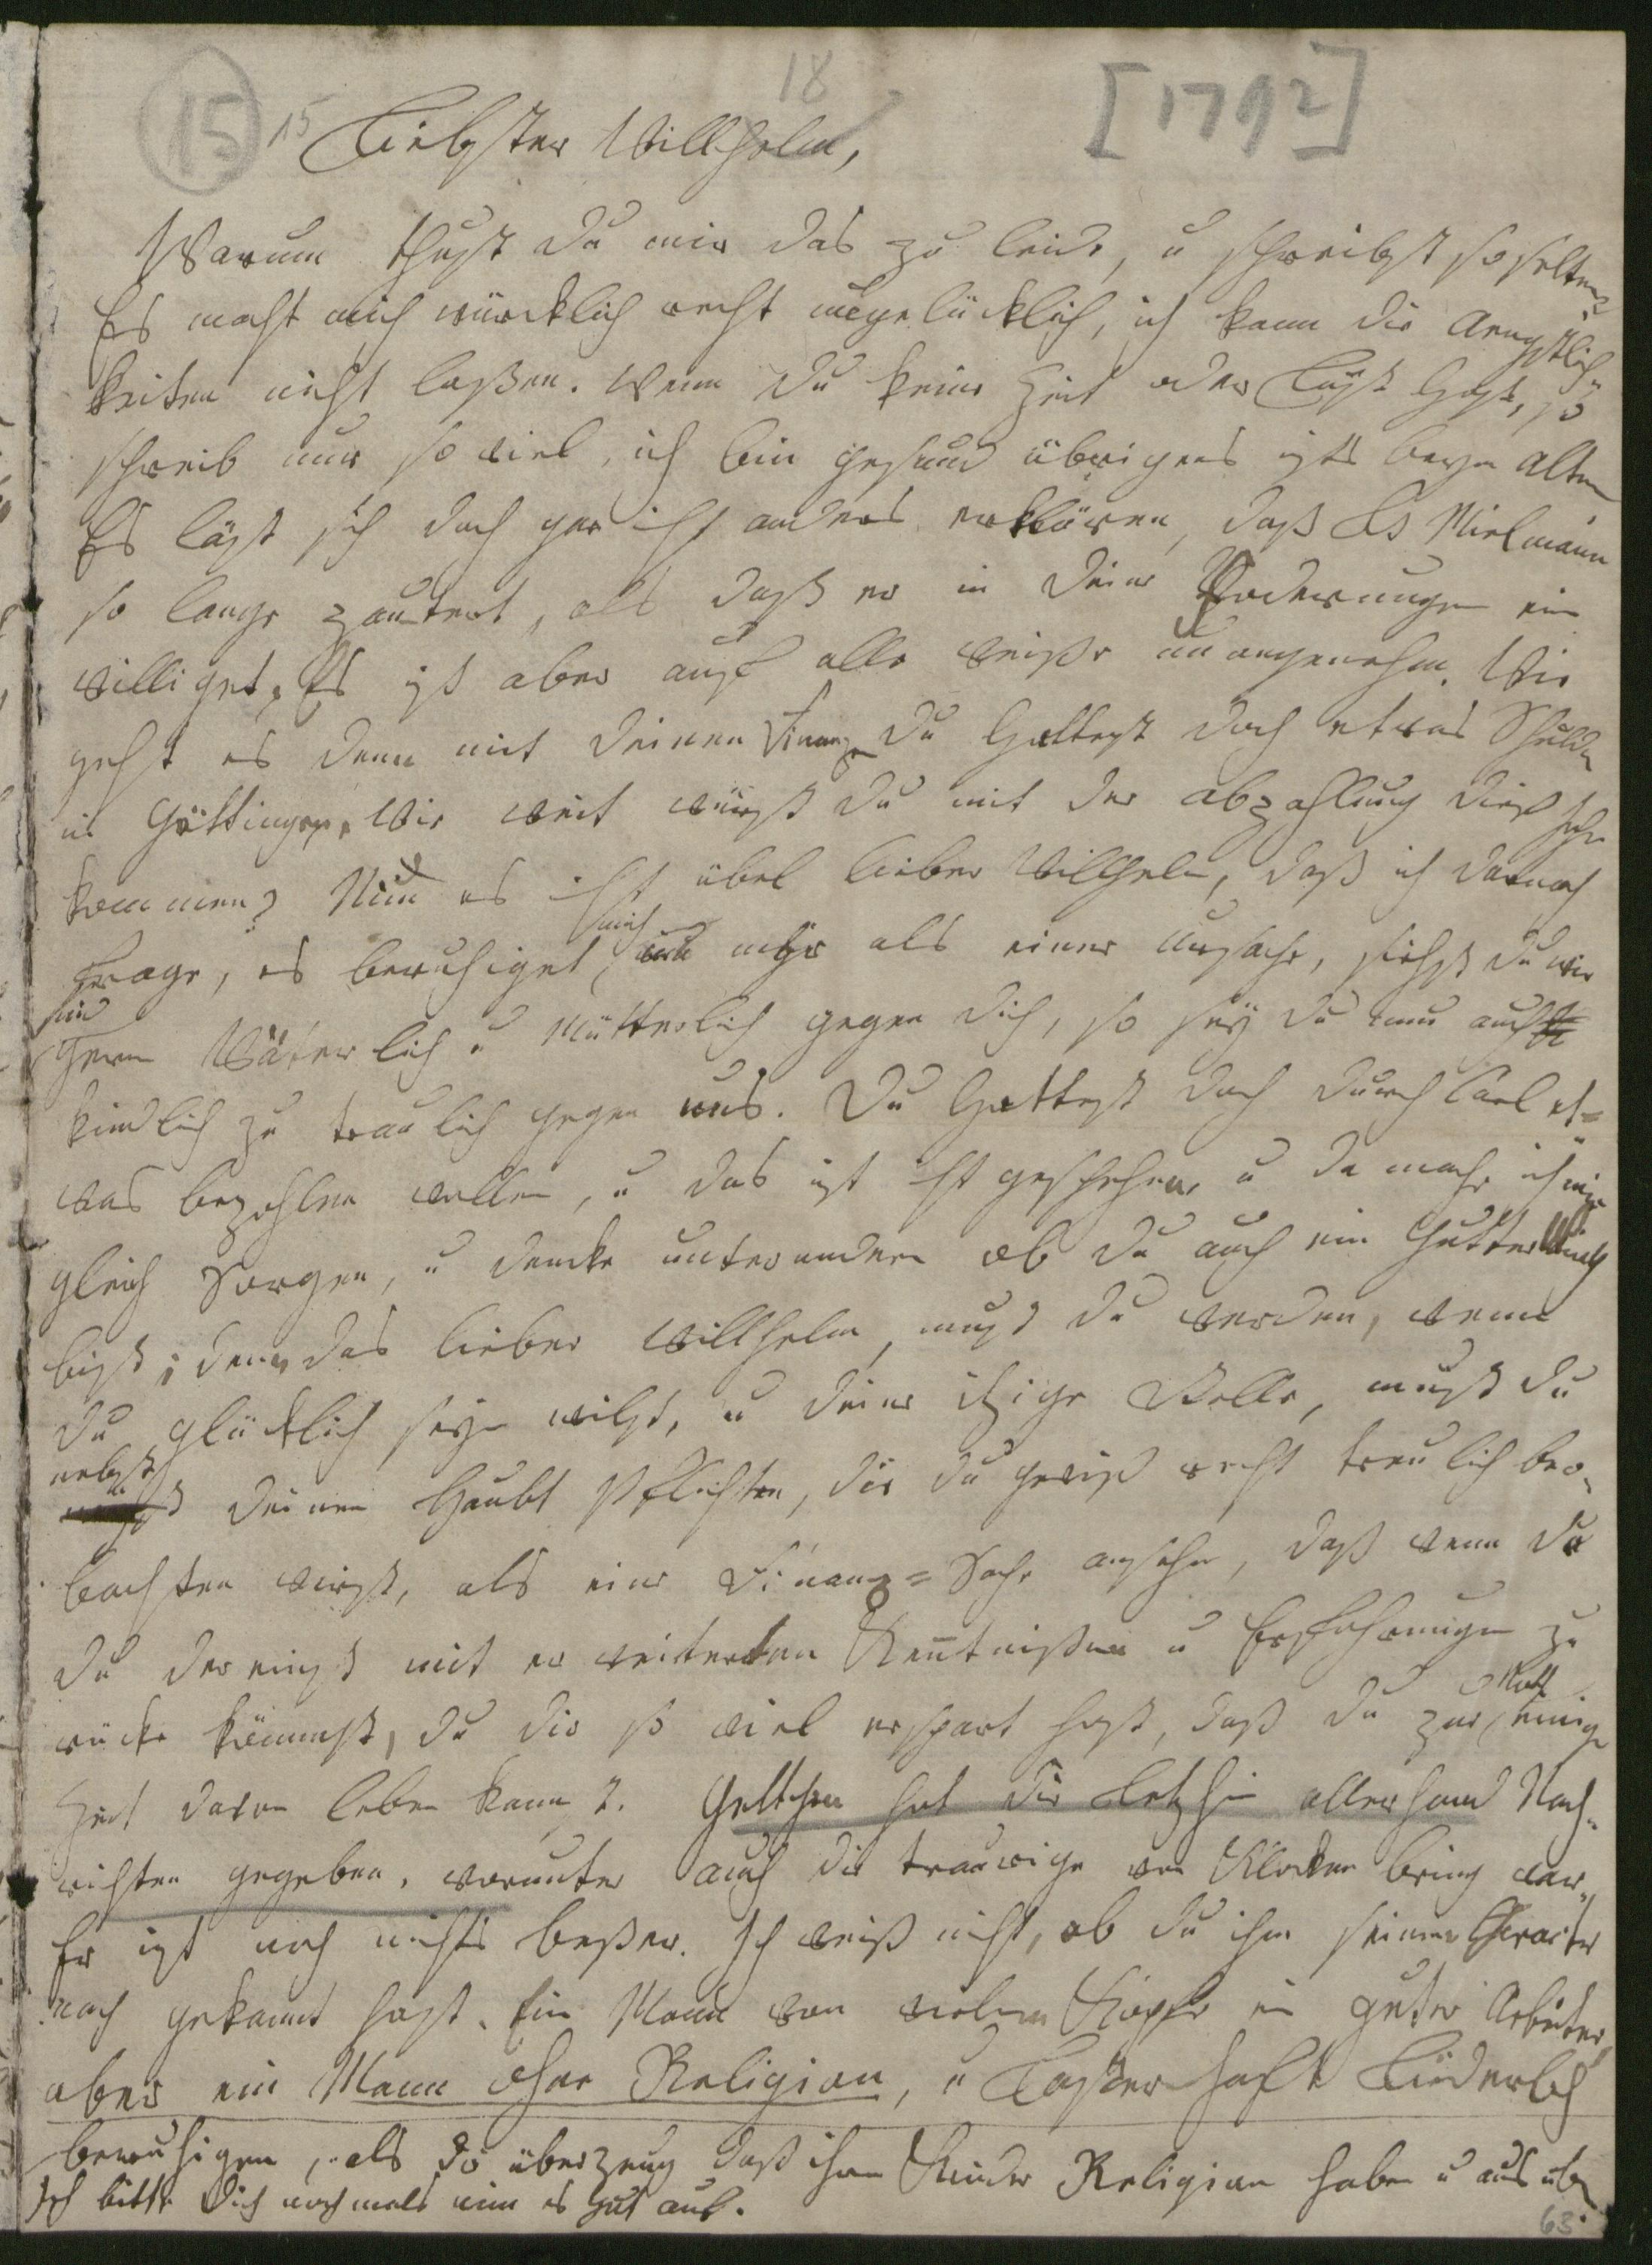 15 15 18 [1792]
Liebster Willhelm,
Warum thust du mir das zu leide, u schreibst so selten?
Es macht mich würcklich recht ungelücklich, ich kann die Aengstlich=
keiten nicht laßen. Wenn du keine Zeit oder Lust hast, so
schreib nur so viel, ich bin gesund übrigens ists beym alten
Es läst sich doch gar nicht anders erklären, daß Es Mielmann
so lange zaudert, als daß er in deine Foderungen ein
williget, Es ist aber auf alle weiße unangenehm. Wie
geht es denn mit deinen Finanzen du hattest doch etwas Schulden
in Göttingen, Wie weit würst du mit der abzahlung dieß Jahr
kommen? Nim es nicht übel lieber Wilhelm, daß ich darnach
frage, es beruhiget mich mehr als einer Ursache, siehst du wir
sind
gern Väterlich u Mütterlich gegen dich, so sey du nun auch
kindlich zu traulich gegen uns. Du hattest doch durch Carl et=
was bezahlen wollen, u das ist nicht geschehen, u da mache ich mir
gleich Sorgen, u dencke unter andern ob du auch ein guter Wirth
bist; denn das lieber Willhelm, must du werden, wenn
du glücklich seyn wilst, u deine itzige Stelle, must du
nebst deinen Haubt Pflichten, die du gewiß recht treulich beo=
bachten wirst, als eine Finanz=Sache ansehen, daß wenn du
du dereinst mit erweiterten Kentnißen u Erfahrungen zu
rücke kömmst, du dir so viel erspart hast, daß du zur Noth einige
Zeit davon leben kannst. Gettchen hat dir letzhin allerhand Nach=
richten gegeben, worunter auch die traurige von Klocken bring war,
Er ist noch nichts beßer. Ich weiß nicht, ob du ihn seinen Caracter
nach gekannt hast. Ein Mann von vielem Kopfe ein guter Arbeiter,
aber ein Mann ohne Religion, u Lasterhaft Liederlich
beruhigen, als die überzeug daß ihre Kinder Religion haben u aus üben
Ich bitte dich nochmals nim es gut auf.
63.